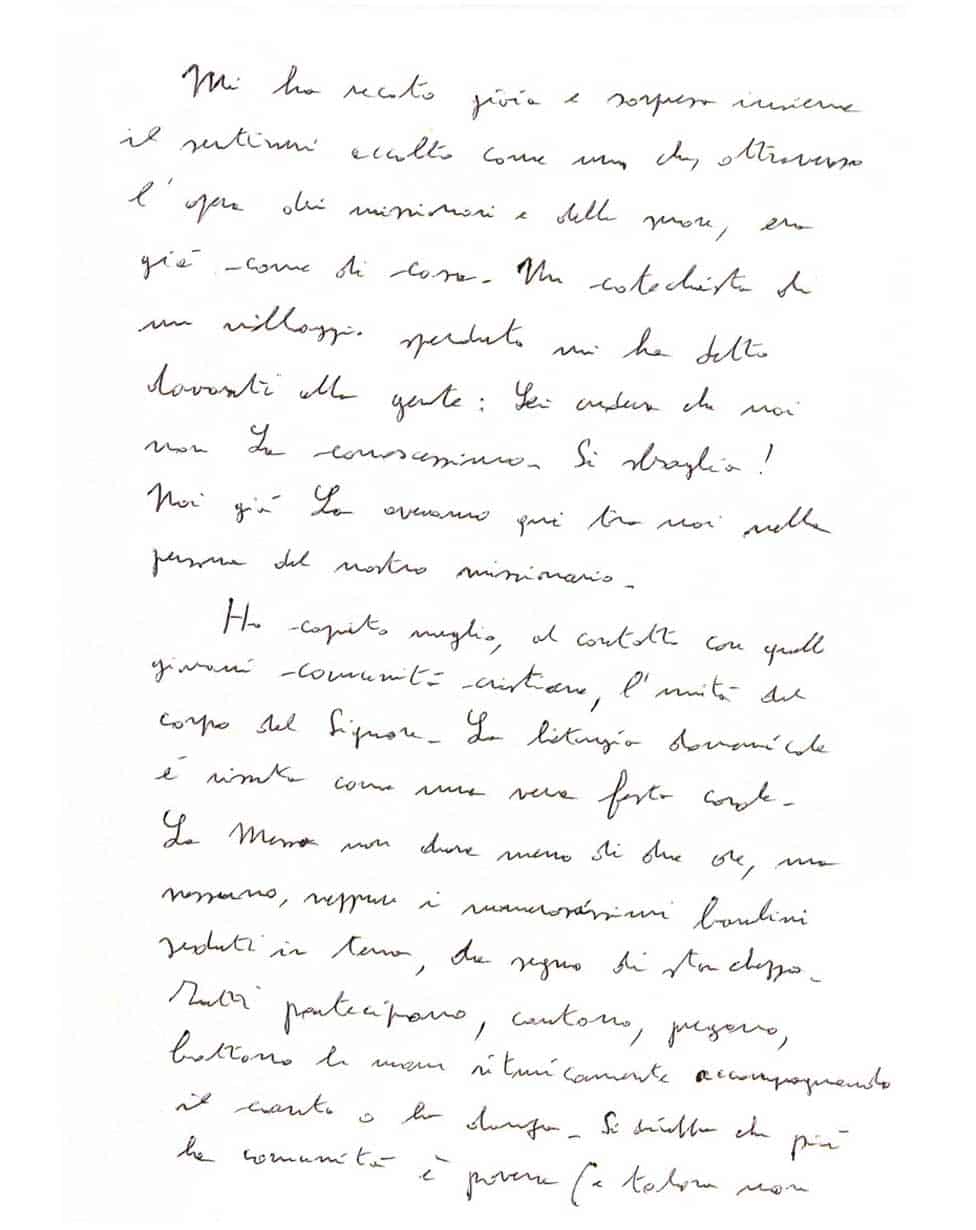 Mi ha recato gioia e sorpresa insieme
il sentirmi accolto come uno che, attraverso
l'opera dei missionari e delle suore, era
già come di casa. Un catechista di
un villaggio sperduto mi ha detto
davanti alla gente: Lei credeva che noi
non La conoscessimo. Si sbaglia!
Noi già La avevamo qui tra noi nella
persona del nostro missionario.
Ho capito meglio, al contatto con quelle
giovani comunità cristiane, l'unità del
corpo del Signore. La liturgia domenicale
è vissuta come una vera festa corale.
La Messa non dura meno di due ore, ma
nessuno, neppure i numerosissimi bambini
seduti in terra, dà segno di stanchezza.
Tutti partecipano, cantano, pregano,
battono le mani ritmicamente accompagnando
il canto o la danza. Si direbbe che più
la comunità è povera (e talora non